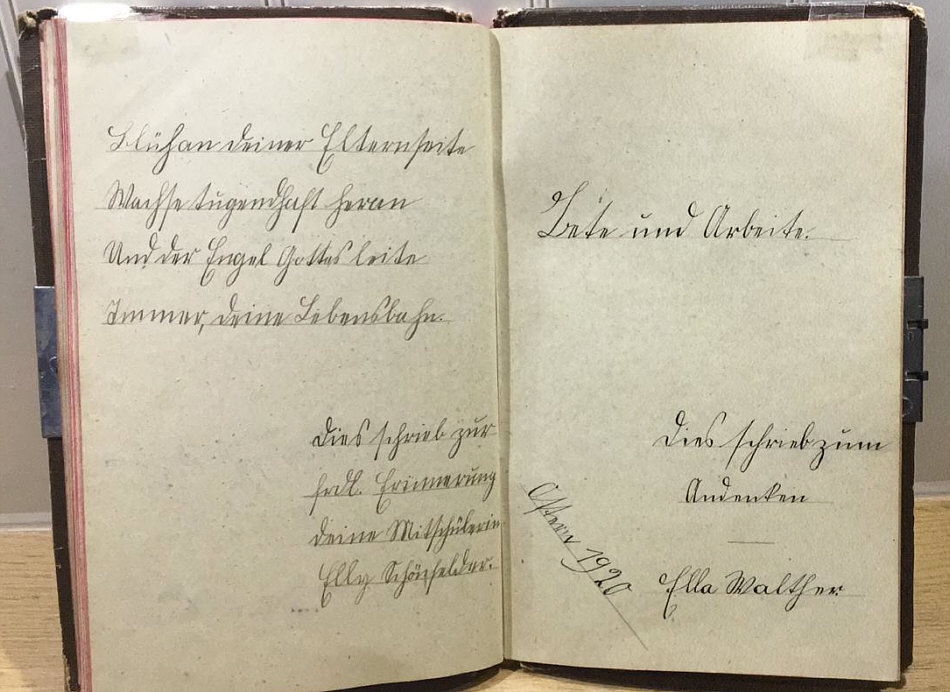 Blüh an deiner Elternseite
Wachse tugendhaft heran
Und der Engel Gottes leite
Immer, deine Lebensbahn.
Dies schrieb zur
frdl. Erinnerung
deine Mitschülerin
Elly
Bete und Arbeite.
Dies schrieb zum
Andenken
Ostern 1920
Ella Walther